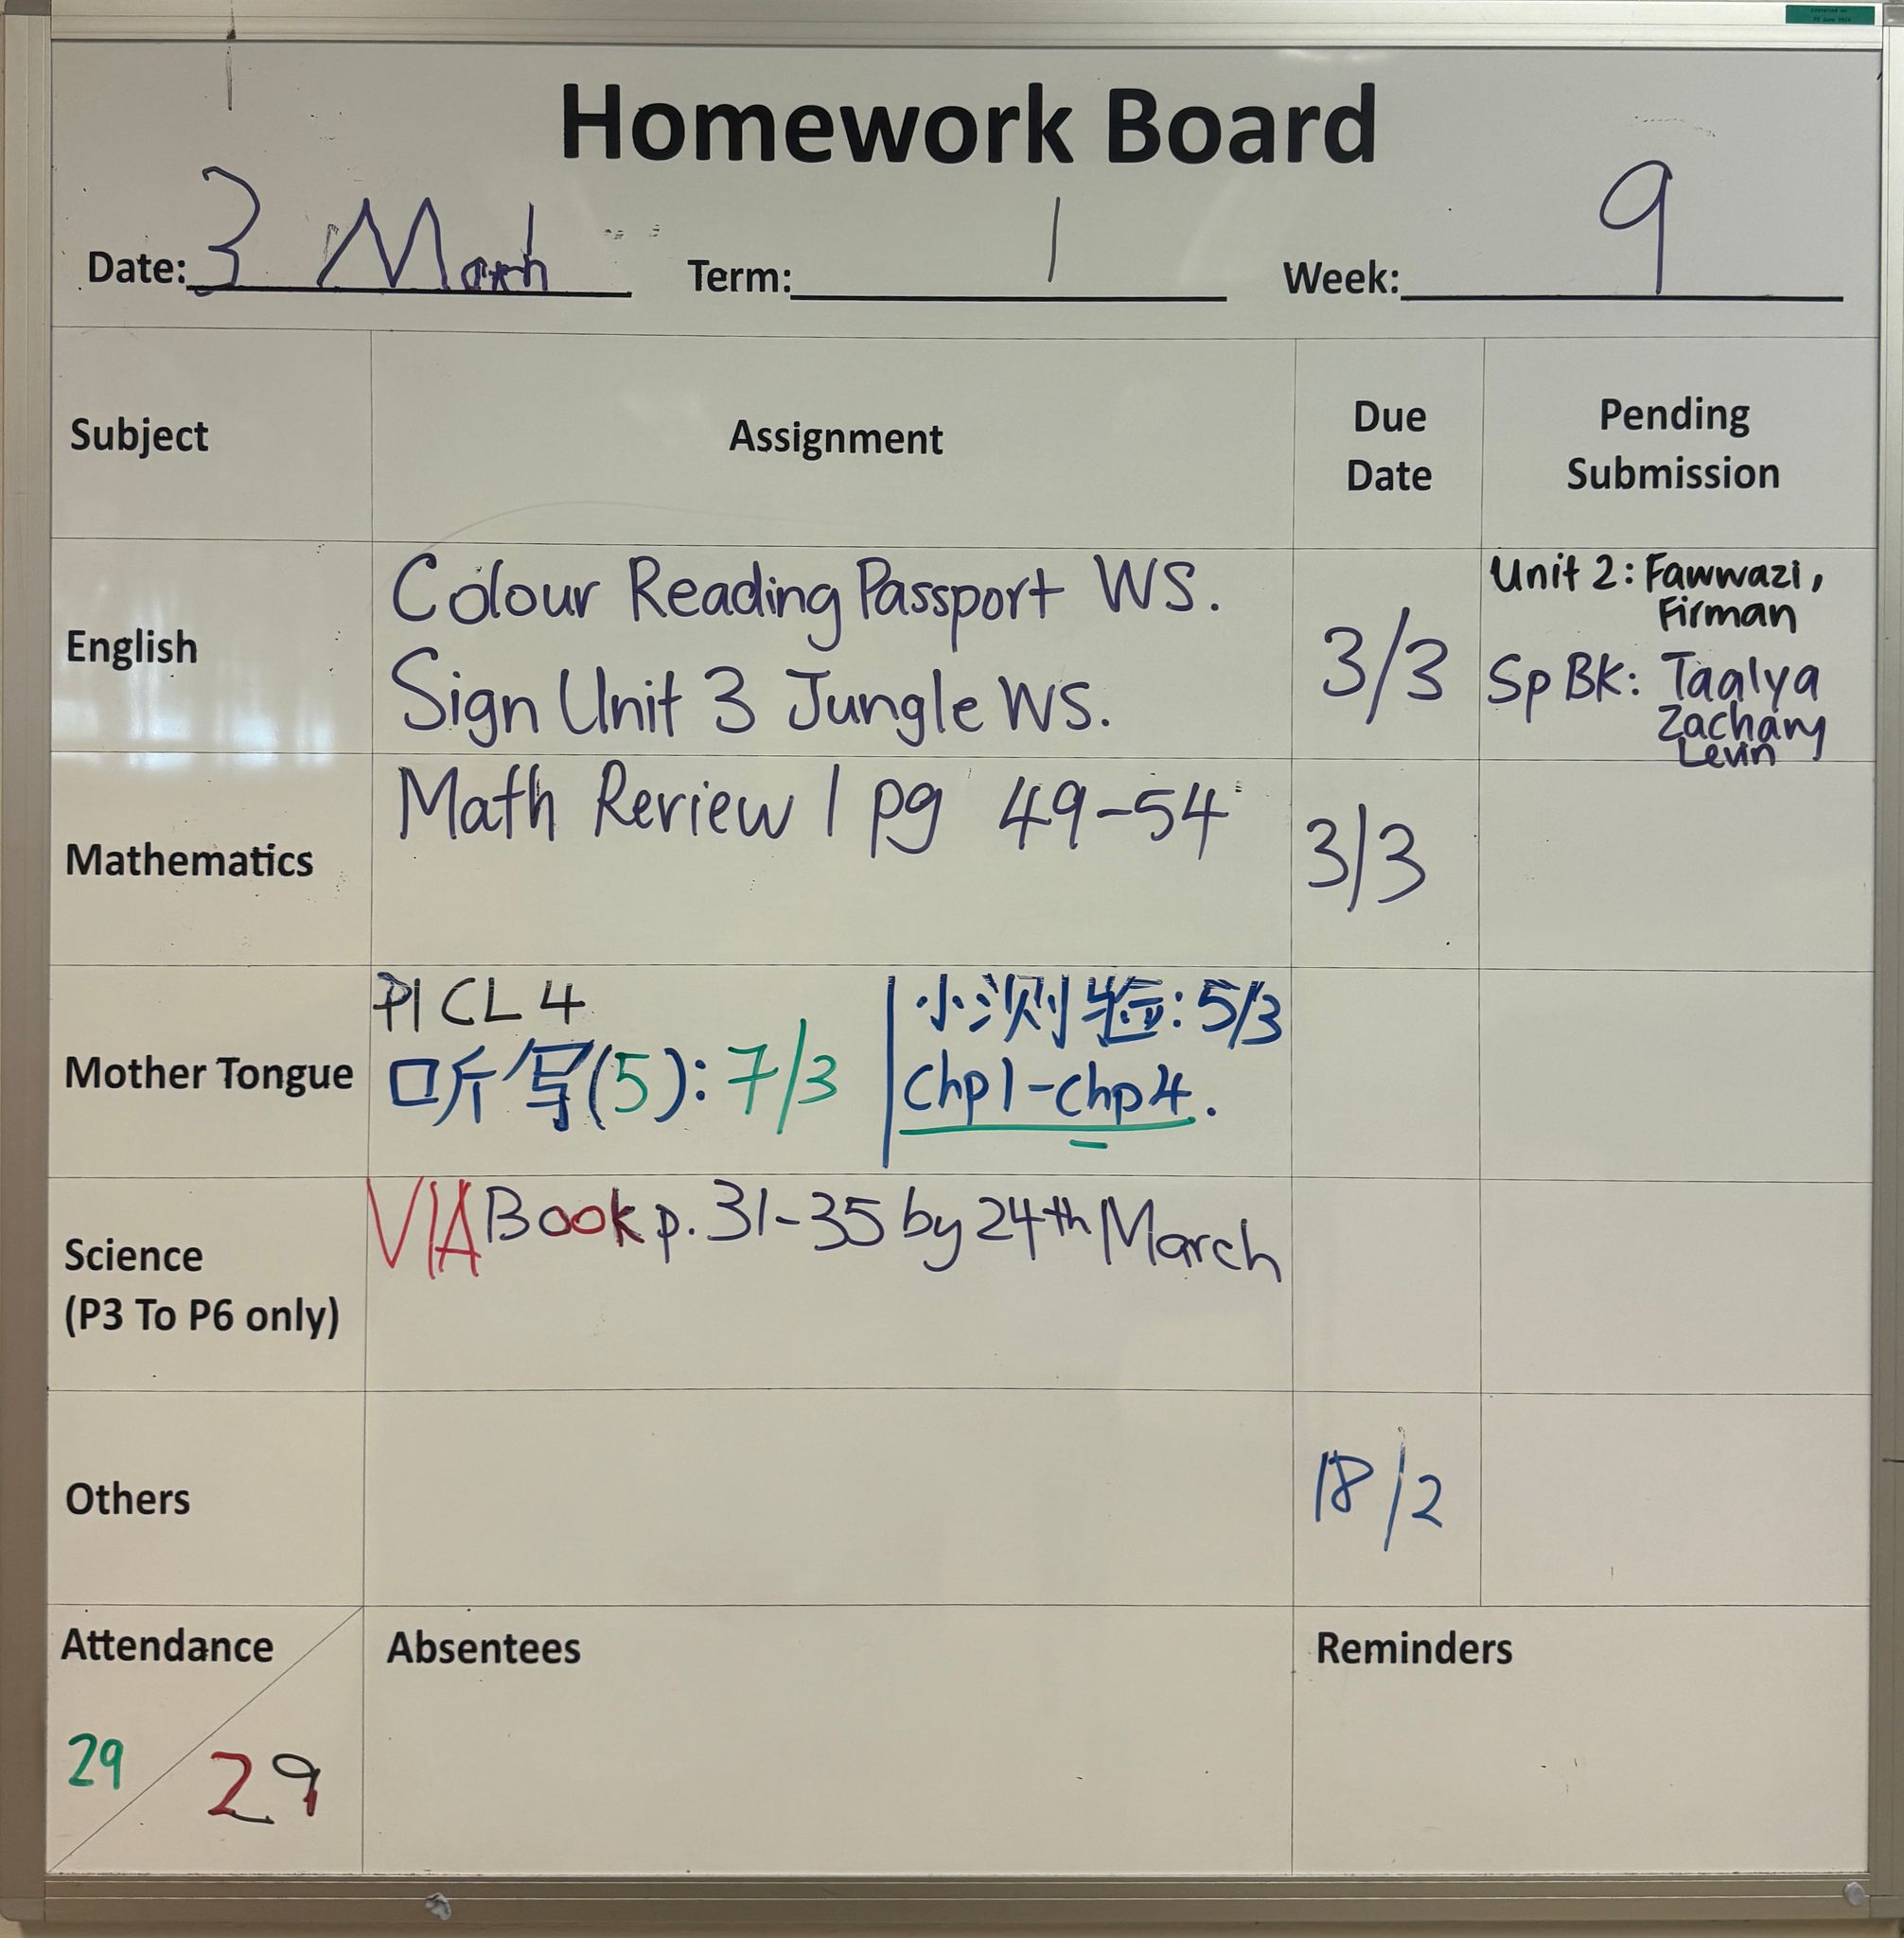 Homework Board
Date: 3 March Term: 1 Week: 9
Subject Assignment Due Date Pending Submission
English
Colour Reading Passport WS.
Sign Unit 3 Jungle WS.
3/3
Unit 2: Fawwazi,
Firman
Sp BK: Taalya
Zachary
Levin
Mathematics
Math Review 1 pg 49-54
3/3
Mother Tongue
P1 CL 4
听写(5): 7/3
小测验: 5/3
Chp1-Chp4.
Science
(P3 To P6 only)
VIA Book p. 31-35 by 24th March
Others
18/2
Attendance
29 / 29
Absentees
Reminders